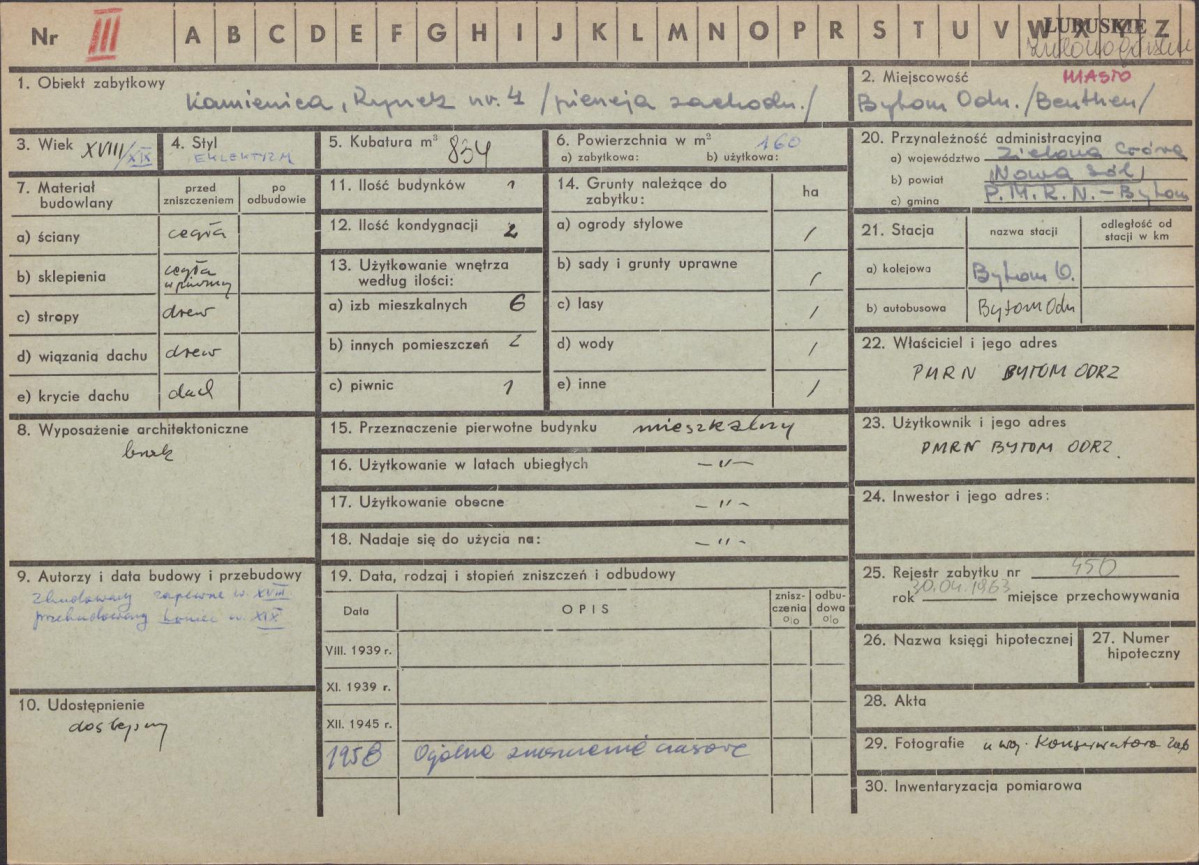 Nr III A B C D E F G H I J K L M N O P R S T U V W X Y Z
LUBUSKIE
1. Obiekt zabytkowy
Kamienica, Rynek nr. 4 /pierzeja zachodn./
2. Miejscowość MIASTO
Bytom Odn. /Beuthen/
3. Wiek XVIII/XIX
4. Styl
EKLEKTYZM
5. Kubatura m³ 834
6. Powierzchnia w m² 160
a) zabytkowa: b) użytkowa:
7. Materiał budowlany
przed zniszczeniem
po odbudowie
a) ściany cegła
b) sklepienia cegła w piwnicy
c) stropy drew
d) wiązania dachu drew
e) krycie dachu dach
8. Wyposażenie architektoniczne
brak
9. Autorzy i data budowy i przebudowy
Zbudowany zapewne w. XVIII
przebudowany koniec w. XIX
10. Udostępnienie
dostępny
11. Ilość budynków 1
12. Ilość kondygnacji 2
13. Użytkowanie wnętrza
według ilości:
a) izb mieszkalnych 6
b) innych pomieszczeń 2
c) piwnic 1
14. Grunty należące do
zabytku:
ha
a) ogrody stylowe /
b) sady i grunty uprawne /
c) lasy /
d) wody /
e) inne /
15. Przeznaczenie pierwotne budynku mieszkalny
16. Użytkowanie w latach ubiegłych — „ —
17. Użytkowanie obecne — „ —
18. Nadaje się do użycia na: — „ —
19. Data, rodzaj i stopień zniszczeń i odbudowy
Data
OPIS
znisz-
czenia
o|o
odbu-
dowa
o|o
VIII. 1939 r.
XI. 1939 r.
XII. 1945 r.
1958 Ogólne zniszczenie czasowe
20. Przynależność administracyjna
a) województwo Zielona Góra
b) powiat Nowa Sól
c) gmina P.M.R.N. - Bytom
21. Stacja
nazwa stacji
odległość od
stacji w km
a) kolejowa Bytom O.
b) autobusowa Bytom Odn
22. Właściciel i jego adres
PMRN BYTOM ODRZ
23. Użytkownik i jego adres
PMRN BYTOM ODRZ.
24. Inwestor i jego adres:
25. Rejestr zabytku nr 450
rok 30.04.1963 miejsce przechowywania
26. Nazwa księgi hipotecznej
27. Numer
hipoteczny
28. Akta
29. Fotografie u woj. Konserwatora Zab
30. Inwentaryzacja pomiarowa